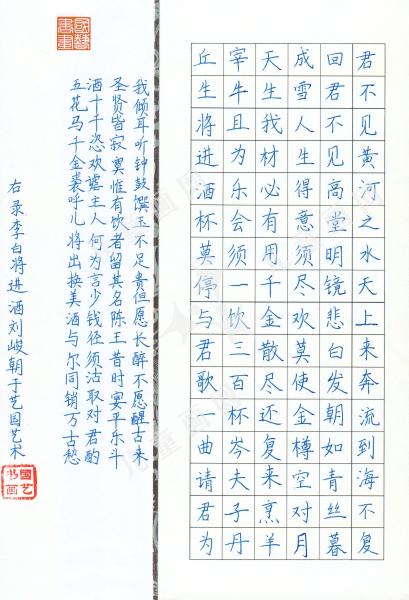 君不见黄河之水天上来奔流到海不复
回君不见高堂明镜悲白发朝如青丝暮
成雪人生得意须尽欢莫使金樽空对月
天生我材必有用千金散尽还复来烹羊
宰牛且为乐会须一饮三百杯岑夫子丹
丘生将进酒杯莫停与君歌一曲请君为
我倾耳听钟鼓馔玉不足贵但愿长醉不愿醒古来
圣贤皆寂寞惟有饮者留其名陈王昔时宴平乐斗
酒十千恣欢谑主人何为言少钱径须沽取对君酌
五花马千金裘呼儿将出换美酒与尔同销万古愁
右录李白将进酒刘峻朝于艺园艺术
国艺书画